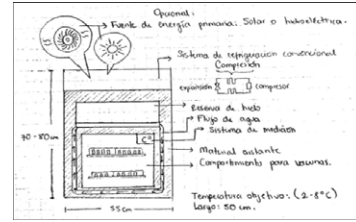 Opcional:
Fuente de energía primaria: Solar o hidroeléctrica.
Sistema de refrigeración convencional
Compresión
expansión
compresor
Reserva de hielo
Flujo de agua
C°
Sistema de medición
Material aislante
Compartimento para vacunas.
70-80cm
55cm
Temperatura objetivo: (2-8°C)
Largo: 50 cm.